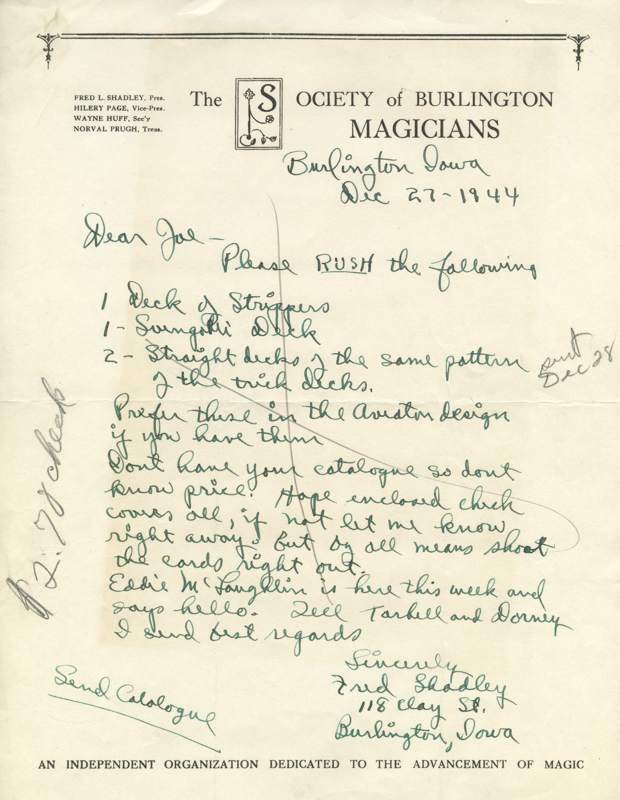 FRED L. SHADLEY, Pres.
HILERY PAGE, Vice-Pres.
WAYNE HUFF, Sec'y
NORVAL PRUGH, Treas.
The SOCIETY of BURLINGTON
MAGICIANS
Burlington Iowa
Dec 27-1944
Dear Joe -
Please RUSH the following
1 Deck of Strippers
1 - Svengali Deck
2 - Straight decks of the same pattern
of the trick decks.
sent
Dec 28
Prefer these in the Aviator design
if you have them
Dont have your catalogue so dont
know price. Hope enclosed check
covers all, if not let me know
right away. But by all means shoot
the cards right out.
$2.78 check
Eddie McLaughlin is here this week and
says hello. Tell Tarbell and Dorney
I send best regards
Sincerely
Fred Shadley
118 Clay St.
Burlington, Iowa
Send Catalogue
AN INDEPENDENT ORGANIZATION DEDICATED TO THE ADVANCEMENT OF MAGIC